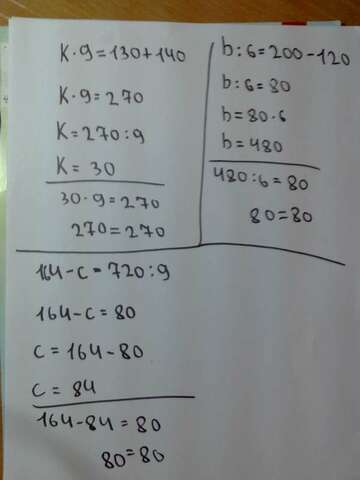 K·9=130+140
K·9=270
K=270:9
K=30
30·9=270
270=270
b:6=200-120
b:6=80
b=80·6
b=480
480:6=80
80=80
164-c=720:9
164-c=80
c=164-80
c=84
164-84=80
80=80